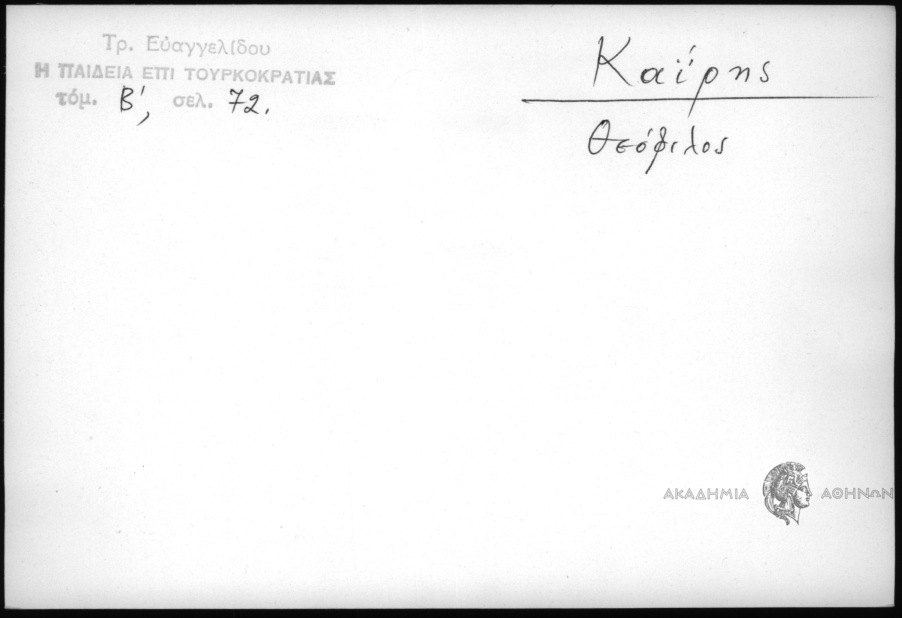 Τρ. Εὐαγγελίδου
Η ΠΑΙΔΕΙΑ ΕΠΙ ΤΟΥΡΚΟΚΡΑΤΙΑΣ
τόμ. Β', σελ. 72.
Καΐρης
Θεόφιλος
ΑΚΑΔΗΜΙΑ ΑΘΗΝΩΝ